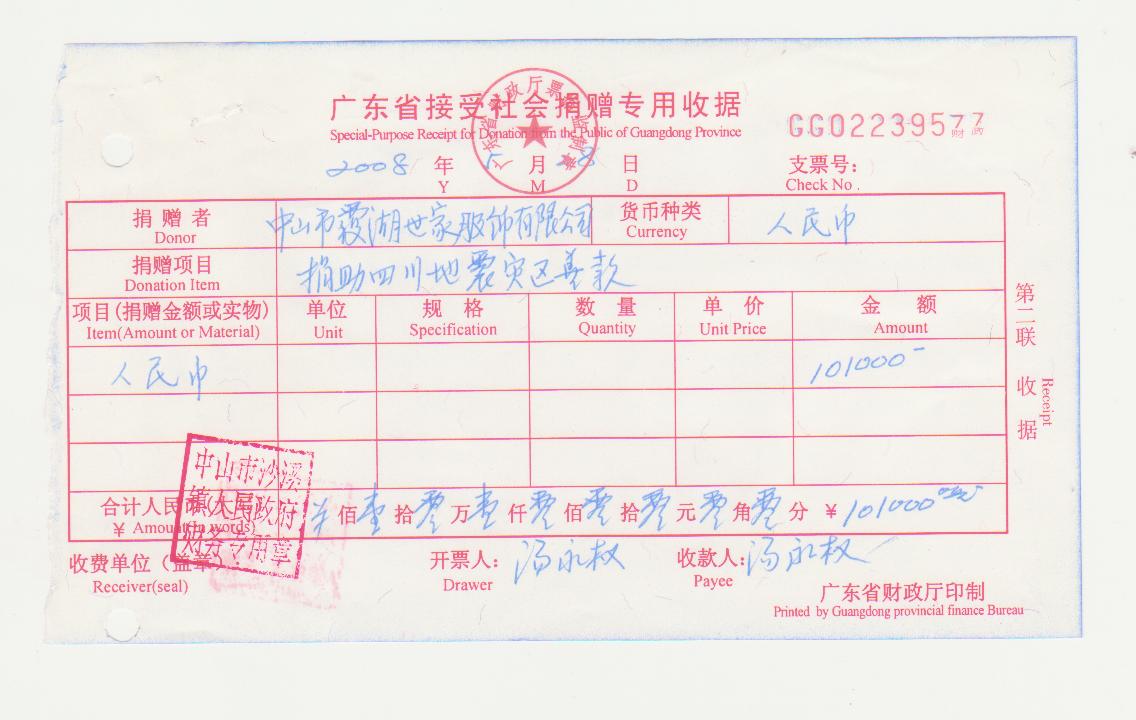 广东省接受社会捐赠专用收据
Special-Purpose Receipt for Donation from the Public of Guangdong Province
GG02239577
财政
2008 年 5 月 28 日 支票号:
Y M D Check No .
捐赠者 中山市霞湖世家服饰有限公司 货币种类 人民币
Donor Currency
捐赠项目 捐助四川地震灾区善款
Donation Item
项目(捐赠金额或实物) 单位 规格 数量 单价 金额
Item(Amount or Material) Unit Specification Quantity Unit Price Amount
人民币 101000-
合计人民币 佰壹拾零万壹仟零佰零拾零元零角零分 ¥101000
¥ Amount(In words)
中山市沙溪
镇人民政府
财务专用章
收费单位(盖章): 开票人: 汤永权 收款人: 汤永权
Receiver(seal) Drawer Payee
广东省财政厅印制
Printed by Guangdong provincial finance Bureau
第二联 收据
Receipt